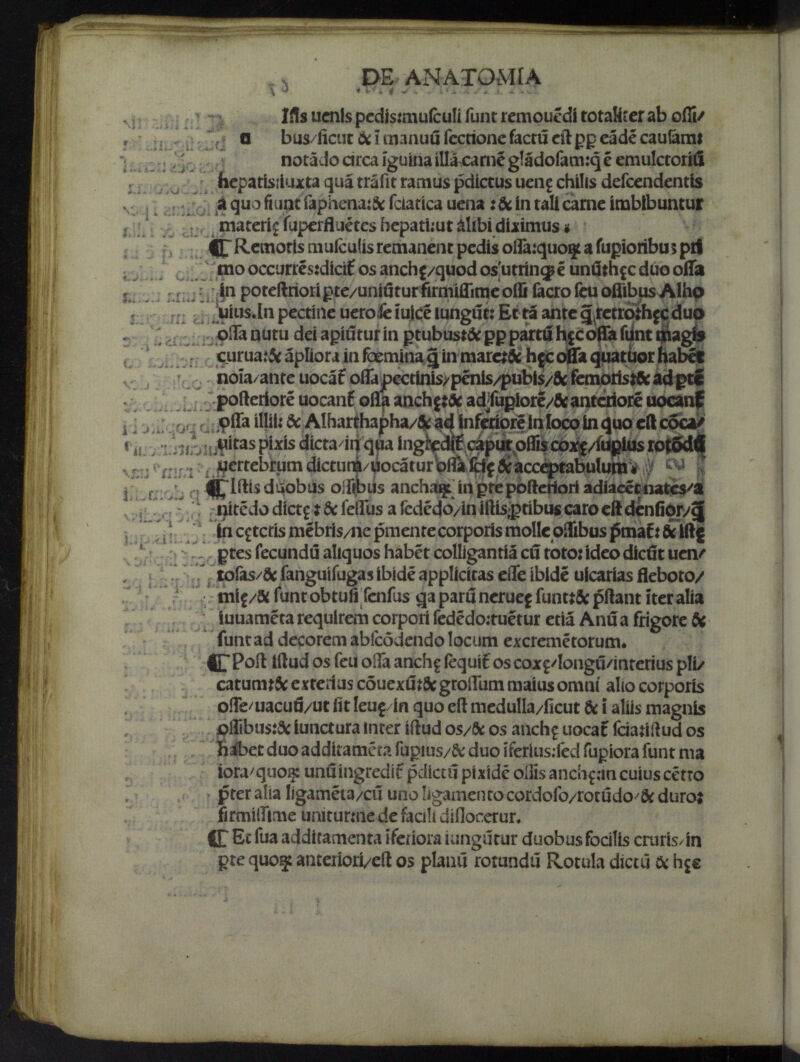 DE ANATOMIA
Iſtis uenis pedis:muſculi ſunt remouēdi totaliter ab oſſi/
bus/ſicut & ī manuū ſectione factū eſt pp eādē cauſam:
notādo circa īguina illā carnē glādoſam:q̄ ē emulctoriū
hepatis:iuxta quā trāſit ramus p̄dictus uenę chilis deſcendentis
a quo fiunt ſaphena:& ſciatica uena :& in tali carne imbibuntur
materię ſuperfluētes hepati:ut alibi diximus.
⸿ Remotis muſculis remanent pedis oſſa:quoꝝ a ſupioribus pri
mo occurrēs:dicit̄ os anchę/quod os utrinqꝫ ē unū:hęc duo oſſa
in poteſtriori pte/uniūtur firmiſſime oſſi ſacro ſeu oſſibus Alho
uius.In pectine uero ſe iuicē iungūt: Et tā ante q̄ retro:hęc duo
oſſa nutu dei apiūtur in ptubus:& pp partū hęc oſſa ſunt magis
curua:& āpliora in fœmina q̄ in mare:& hęc oſſa quatuor habēt
noīa/ante uocāt̄ oſſa pectinis/pēnis/pubis/& femoris:& ad ptē
poſteriorē uocant̄ oſſa anchę:& ad ſupiorē/& anteriorē uocant̄
oſſa illii: & Alharthapha/& ad inferiorē in loco in quo eſt cōca/
uitas pixis dicta/in qua ingredit̄ caput oſſis coxę/ſupius rotōdū
uertebrum dictum/uocātur oſſa ſcię & acceptabulum.
⸿ Iſtis duobus oſſibus anchaꝝ in pte poſteriori adiacēt nates/a
nitēdo dictę : & ſeſſus a ſedēdo/in iſtis ptibus caro eſt denſior/q̄
in cęteris mēbris/ne p̄mente corporis molle oſſibus p̄mat̄: & iſtę
ptes ſecundū aliquos habēt colligantiā cū toto: ideo dicūt uen/
toſas/& ſanguiſugas ibidē applicitas eſſe ibidē uicarias fleboto/
mię/& ſunt obtuſi ſenſus qa parū neruee ſunt:& p̄ſtant iter alia
iuuamēta requirem corpori ſedēdo:tuētur etiā Anū a frigore &
ſunt ad decorem abſcōdendo locum excremētorum.
⸿ Poſt iſtud os ſeu oſſa anchę ſequit̄ os coxę/longū/interius pli/
catum:& exterius cōuexū:& groſſum maius omni alio corporis
oſſe/uacuū/ut ſit leuę/in quo eſt medulla/ſicut & ī aliis magnis
oſſibus:& iunctura inter iſtud os/& os anchę uocat̄ ſcia:iſtud os
habet duo additamēta ſupius/& duo īferius:ſed ſupiora ſunt ma
iora/quoꝝ unū ingredit̄ p̄dictū pixidē oſſis anchę:in cuius cētro
p̄ter alia ligamēta/cū uno ligamento cordoſo/rotūdo/& duro:
firmiſſime unitur:ne de facili diſlocetur.
⸿ Et ſua additamenta īferiora iungūtur duobus focilis cruris/in
pte quoꝝ anteriori/eſt os planū rotundū Rotula dictū & hęc